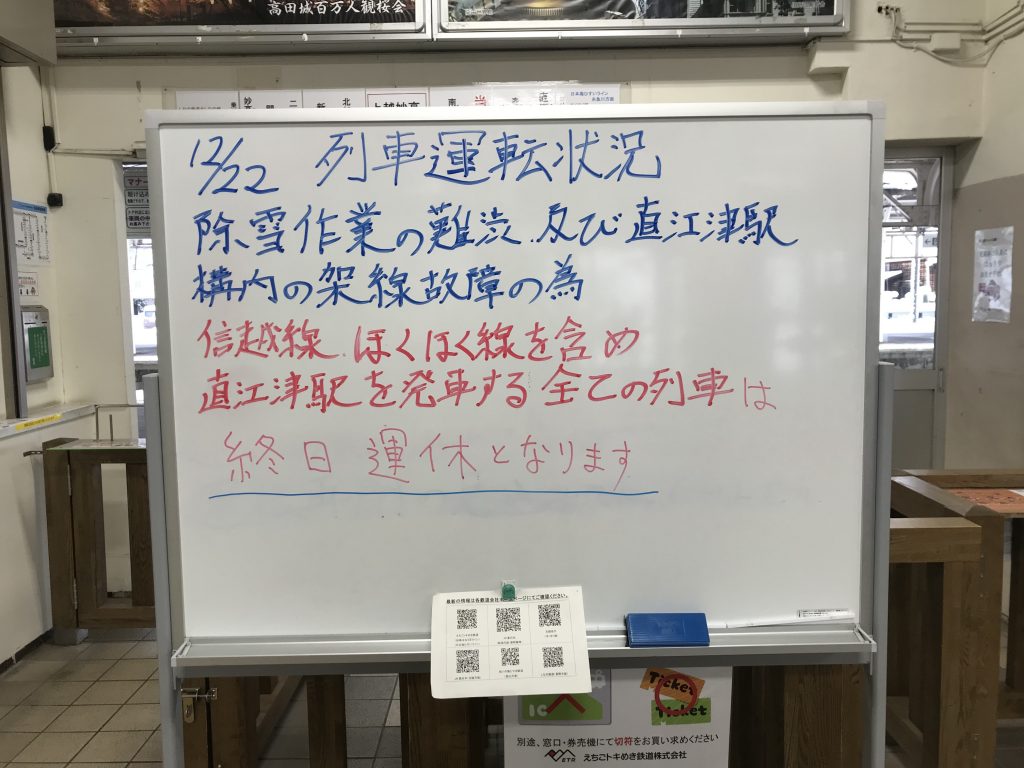 高田城百万人観桜会
上越妙高
12/22 列車運転状況
除雪作業の難渋、及び直江津駅
構内の架線故障の為
信越線、ほくほく線を含め
直江津駅を発車する全ての列車は
終日運休となります
Ticket
Ticket
IC
別途、窓口・券売機にて切符をお買い求めください
ETR えちごトキめき鉄道株式会社